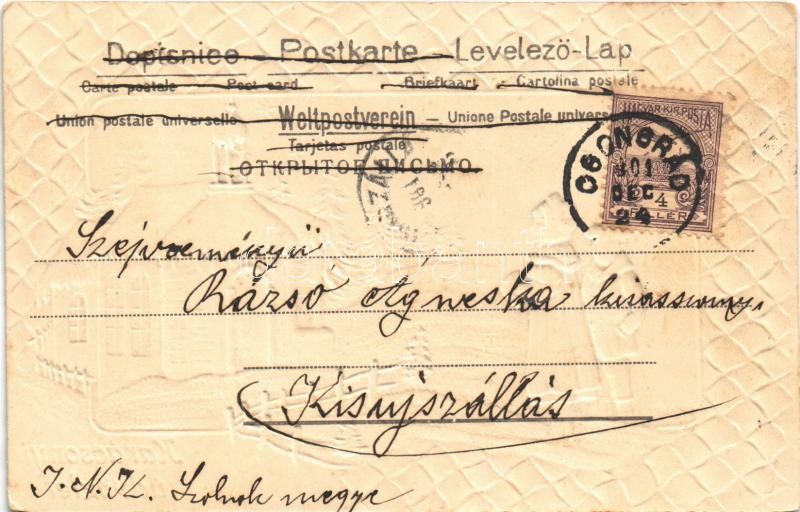 Dopisnice – Postkarte – Levelező-Lap
Carte postale – Post card – Briefkaart – Cartolina postale
Union postale universelle – Weltpostverein – Unione Postale univers
Tarjetas postale
ОТКРЫТОЕ ПИСЬМО
MAGYAR KIR. POSTA
4
FILLÉR
CSONGRÁD
901
DEC
24
Rázsó Agneska kisasszony,
Kisujszállás
J. N. K. Szolnok megye
darabanth